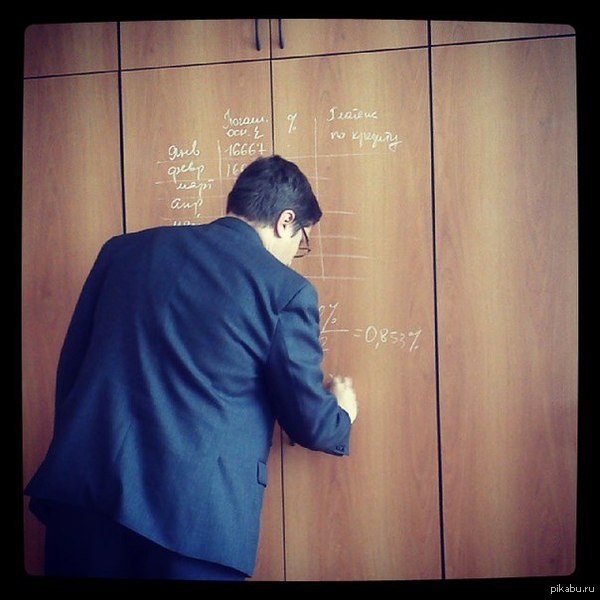 Погаш. % Платеж
осн. Σ по кредиту
янв 16667
февр 166
март
апр
%
= 0,853%
pikabu.ru